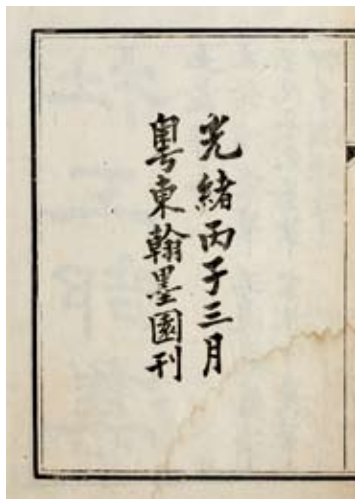 光緒丙子三月
粵東翰墨園刊